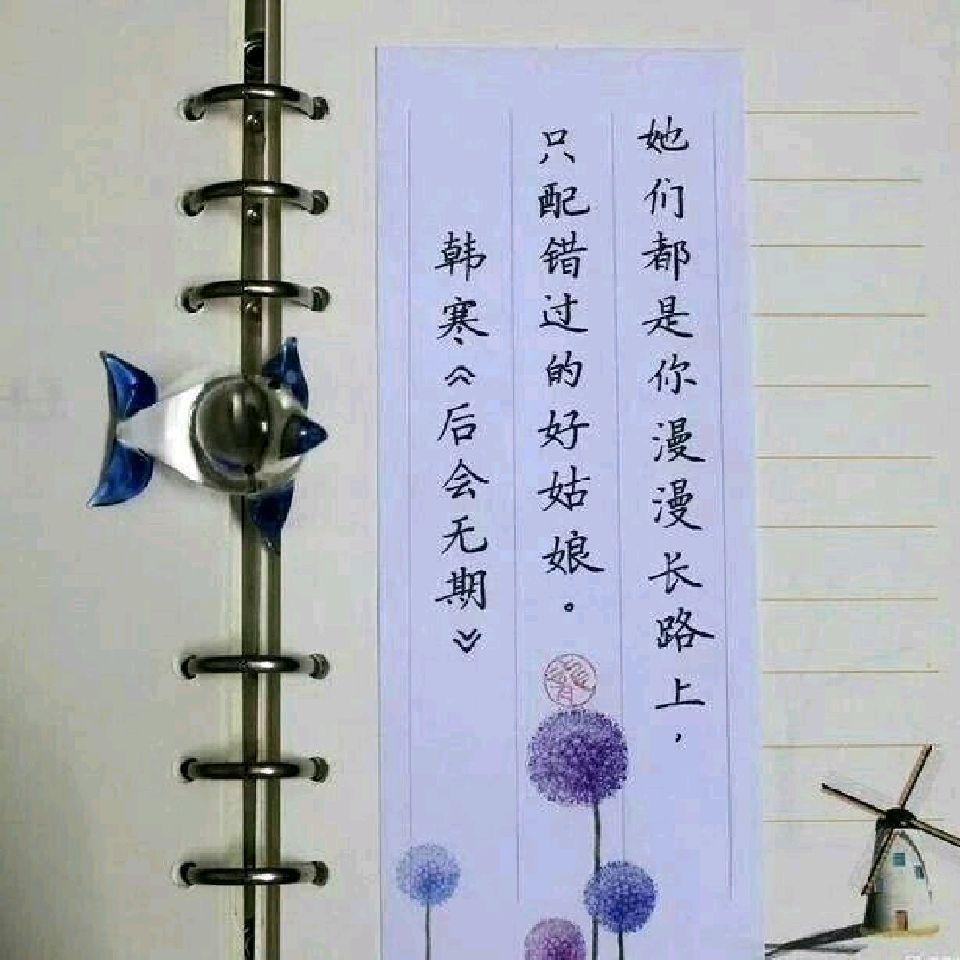 她们都是你漫漫长路上，
只配错过的好姑娘。
韩寒《后会无期》